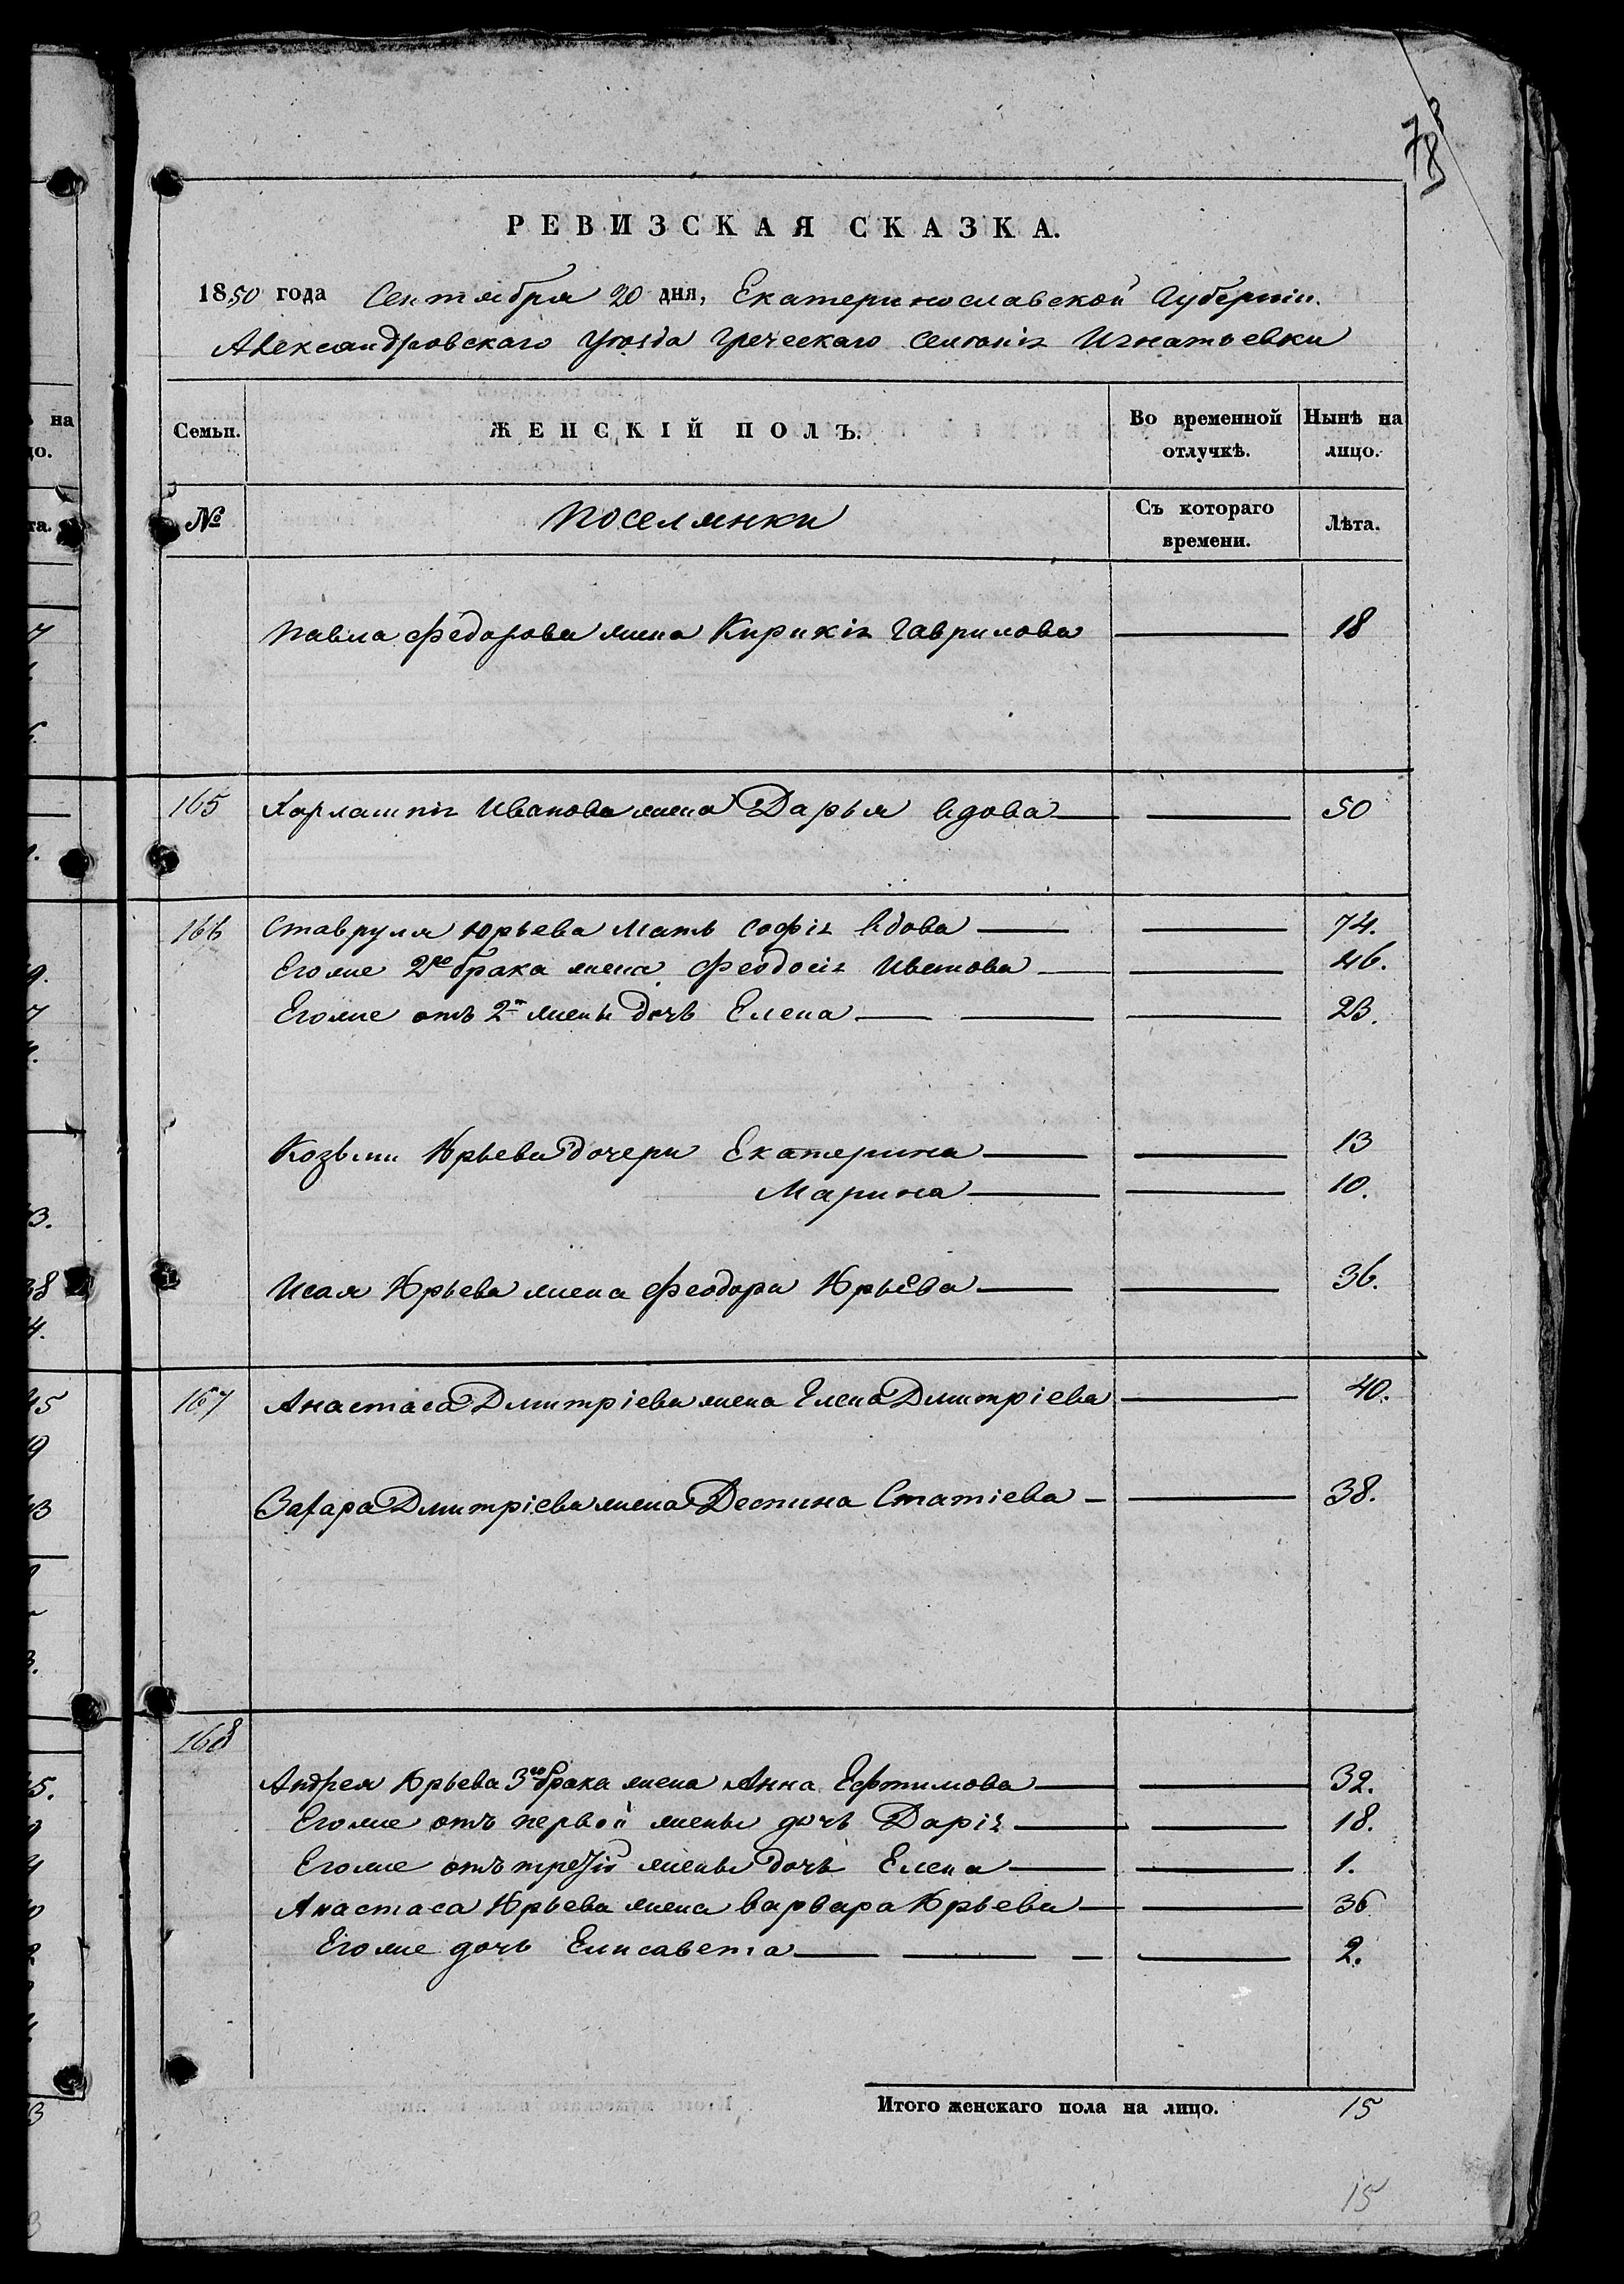 78
РЕВИЗСКАЯ СКАЗКА.
1850 года Сентября 20 дня, Екатеринославской Губерніи.
Александровскаго Уѣзда Греческаго Селенія Игнатьевки
Семьи. ЖЕНСКІЙ ПОЛЪ. Во временной отлучкѣ. Нынѣ на лицо.
№ Поселянки Съ котораго времени. Лѣта.
Павла Федорова жена Кирикія Гаврилова 18
165 Харлампія Иванова жена Дарья вдова 50
166 Ставруля Юрьева мать Софія вдова 74.
Егоже 2го брака жена Феодосія 46.
Егоже отъ 2й жены дочь Елена 23.
Козьмы Юрьева дочери Екатерина 13
Марина 10.
Исая Юрьева жена Феодора Юрьева 36.
167 Анастаса Дмитріева жена Елена Дмитріева 40.
Захара Дмитріева жена Деспина Статіева 38.
168
Андрея Юрьева 3го брака жена Анна Ефтимова 32.
Егоже отъ первой жены дочь Дарія 18.
Егоже отъ третій жены дочь Елена 1.
Анастаса Юрьева жена Варвара Юрьева 36
Егоже дочь Елисавета 2.
Итого женскаго пола на лицо. 15
15